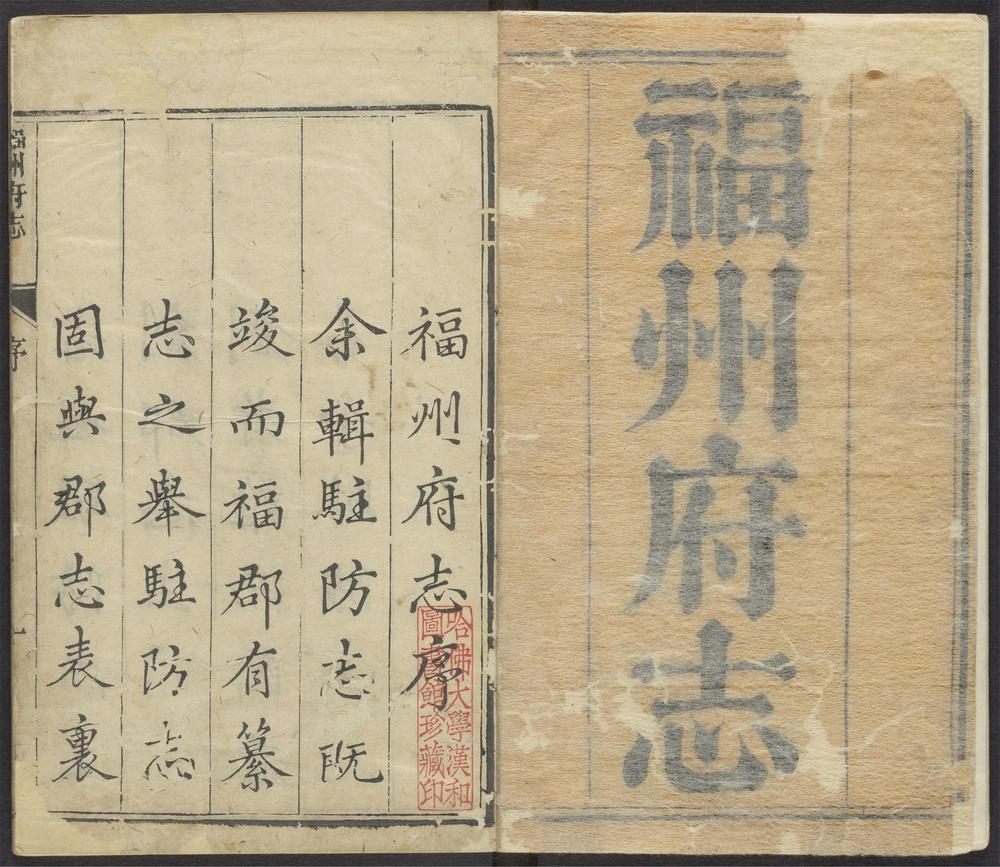 福州府志
福州府志序
余輯駐防志既
竣而福郡有纂
志之舉駐防志
固與郡志表裏
福州府志
序
一
哈佛大學漢和
圖書館珍藏印